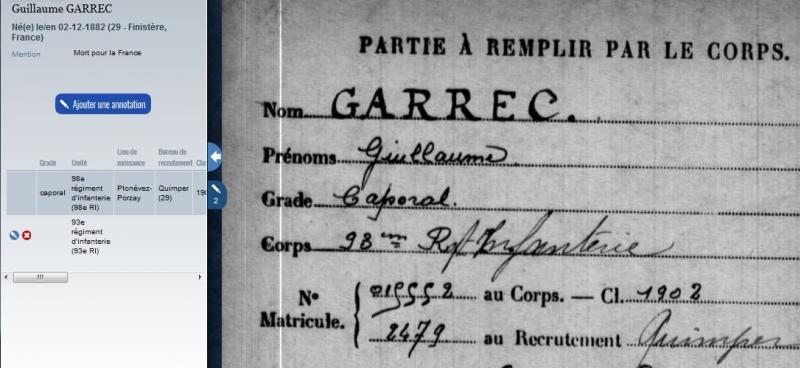 Guillaume GARREC
Né(e) le/en 02-12-1882 (29 - Finistère,
France)
Mention Mort pour la France
Ajouter une annotation
Grade Unité Lieu de naissance Bureau de recrutement Clas
caporal 98e régiment d'infanterie (98e RI) Plonévez-Porzay Quimper (29) 190
93e régiment d'infanterie (93e RI)
2
PARTIE À REMPLIR PAR LE CORPS.
Nom GARREC.
Prénoms Guillaume
Grade Caporal.
Corps 98em Rgt Infanterie
No Matricule. 019552 au Corps. — Cl. 1902
2479 au Recrutement Quimper